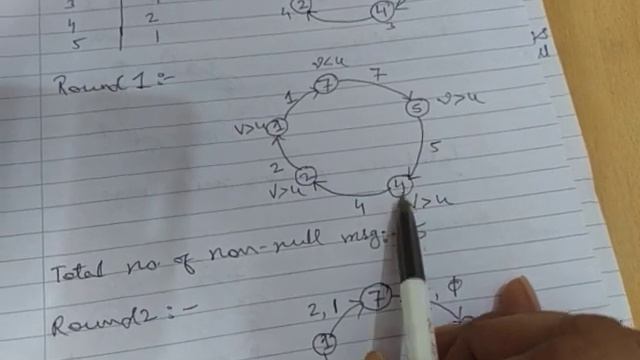 3
4 2
5 1
2
4
4
3
Round 1 :-
v<u
7
7
1
5 v>u
v>u 1
5
2
2
v>u
4
v>u
4
Total no. of non-null msg:- 5
Round 2 :-
2, 1
7
, φ
1